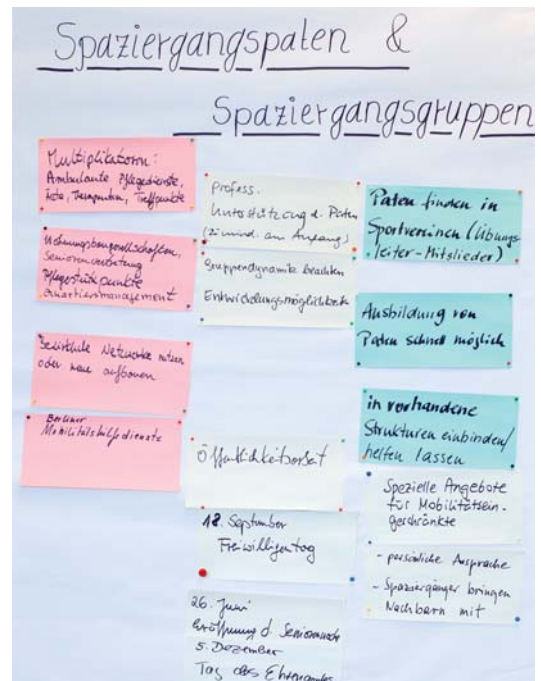 Spaziergangspaten &
Spaziergangsgruppen
Multiplikatoren:
Ambulante Pflegedienste,
Ärzte, Therapeuten, Treffpunkte
Wohnungsbaugesellschaften,
Seniorenvertretung
Pflegestützpunkte
Quartiersmanagement
Bezirkliche Netzwerke nutzen
oder neue aufbauen
Berliner
Mobilitätshilfsdienste
Profess.
Unterstützung d. Paten
(zumind. am Anfang)
Gruppendynamik beachten
Entwicklungsmöglichkeit
Öffentlichkeitsarbeit
18. September
Freiwilligentag
26. Juni
Eröffnung d. Seniorenwoche
5. Dezember
Tag des Ehrenamtes
Paten finden in
Sportvereinen (Übungs
leiter-Mitglieder)
Ausbildung von
Paten schnell möglich
in vorhandene
Strukturen einbinden/
helfen lassen
Spezielle Angebote
für Mobilitätsein-
geschränkte
- persönliche Ansprache
- Spaziergänger bringen
Nachbarn mit